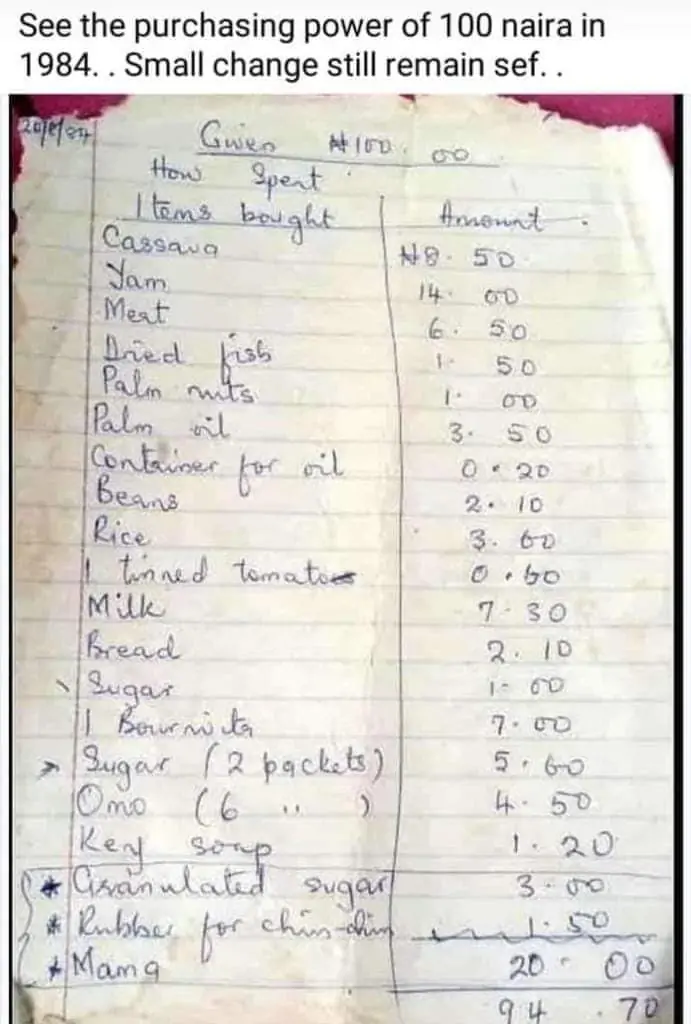 See the purchasing power of 100 naira in
1984. . Small change still remain sef. .
Given ₦100.00
How Spent
Items bought Amount
Cassava ₦8.50
Yam 14.00
Meat 6.50
Dried fish 1.50
Palm nuts 1.00
Palm oil 3.50
Container for oil 0.20
Beans 2.10
Rice 3.60
1 tinned tomatoes 0.60
Milk 7.30
Bread 2.10
Sugar 1.00
1 Bournvita 7.00
Sugar (2 packets) 5.60
Omo (6 " ) 4.50
Key soap 1.20
* Granulated sugar 3.00
* Rubber for chin-chin 1.50
* Mama 20.00
94.70